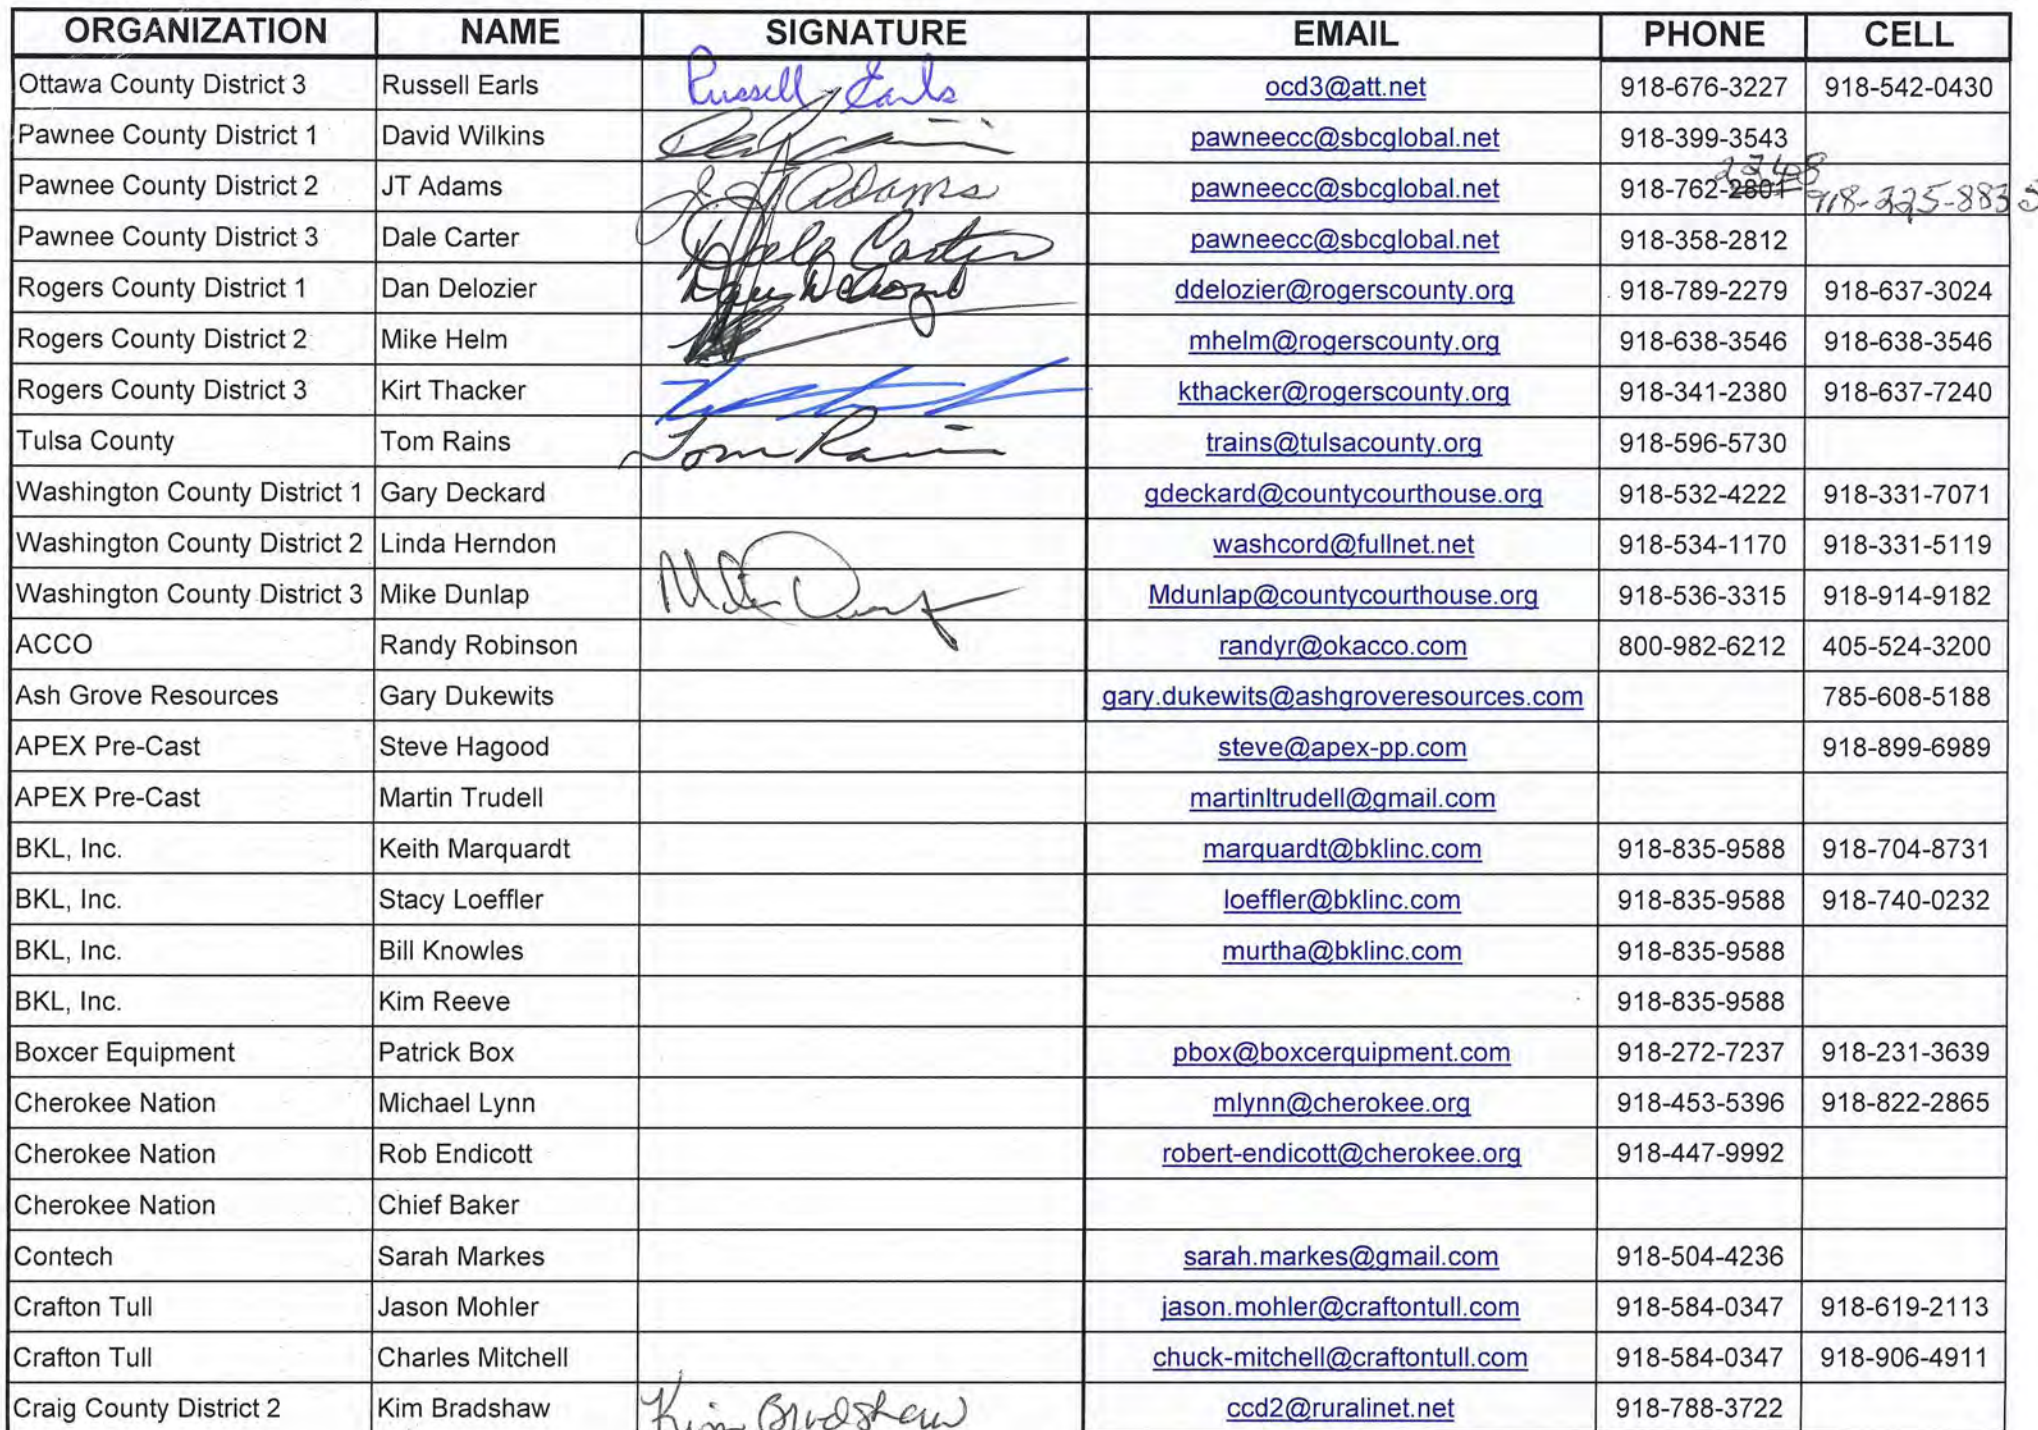 ORGANIZATION NAME SIGNATURE EMAIL PHONE CELL
Ottawa County District 3 Russell Earls Russell Earls ocd3@att.net 918-676-3227 918-542-0430
Pawnee County District 1 David Wilkins pawneecc@sbcglobal.net 918-399-3543
2248
Pawnee County District 2 JT Adams J.T. Adams pawneecc@sbcglobal.net 918-762-2801 918-225-8835
Pawnee County District 3 Dale Carter Dale Carter pawneecc@sbcglobal.net 918-358-2812
Rogers County District 1 Dan Delozier Dan Delozier ddelozier@rogerscounty.org 918-789-2279 918-637-3024
Rogers County District 2 Mike Helm mhelm@rogerscounty.org 918-638-3546 918-638-3546
Rogers County District 3 Kirt Thacker kthacker@rogerscounty.org 918-341-2380 918-637-7240
Tulsa County Tom Rains Tom Rains trains@tulsacounty.org 918-596-5730
Washington County District 1 Gary Deckard gdeckard@countycourthouse.org 918-532-4222 918-331-7071
Washington County District 2 Linda Herndon washcord@fullnet.net 918-534-1170 918-331-5119
Washington County District 3 Mike Dunlap Mike Dunlap Mdunlap@countycourthouse.org 918-536-3315 918-914-9182
ACCO Randy Robinson randyr@okacco.com 800-982-6212 405-524-3200
Ash Grove Resources Gary Dukewits gary.dukewits@ashgroveresources.com 785-608-5188
APEX Pre-Cast Steve Hagood steve@apex-pp.com 918-899-6989
APEX Pre-Cast Martin Trudell martinltrudell@gmail.com
BKL, Inc. Keith Marquardt marquardt@bklinc.com 918-835-9588 918-704-8731
BKL, Inc. Stacy Loeffler loeffler@bklinc.com 918-835-9588 918-740-0232
BKL, Inc. Bill Knowles murtha@bklinc.com 918-835-9588
BKL, Inc. Kim Reeve 918-835-9588
Boxcer Equipment Patrick Box pbox@boxcerquipment.com 918-272-7237 918-231-3639
Cherokee Nation Michael Lynn mlynn@cherokee.org 918-453-5396 918-822-2865
Cherokee Nation Rob Endicott robert-endicott@cherokee.org 918-447-9992
Cherokee Nation Chief Baker
Contech Sarah Markes sarah.markes@gmail.com 918-504-4236
Crafton Tull Jason Mohler jason.mohler@craftontull.com 918-584-0347 918-619-2113
Crafton Tull Charles Mitchell chuck-mitchell@craftontull.com 918-584-0347 918-906-4911
Craig County District 2 Kim Bradshaw Kim Bradshaw ccd2@ruralinet.net 918-788-3722